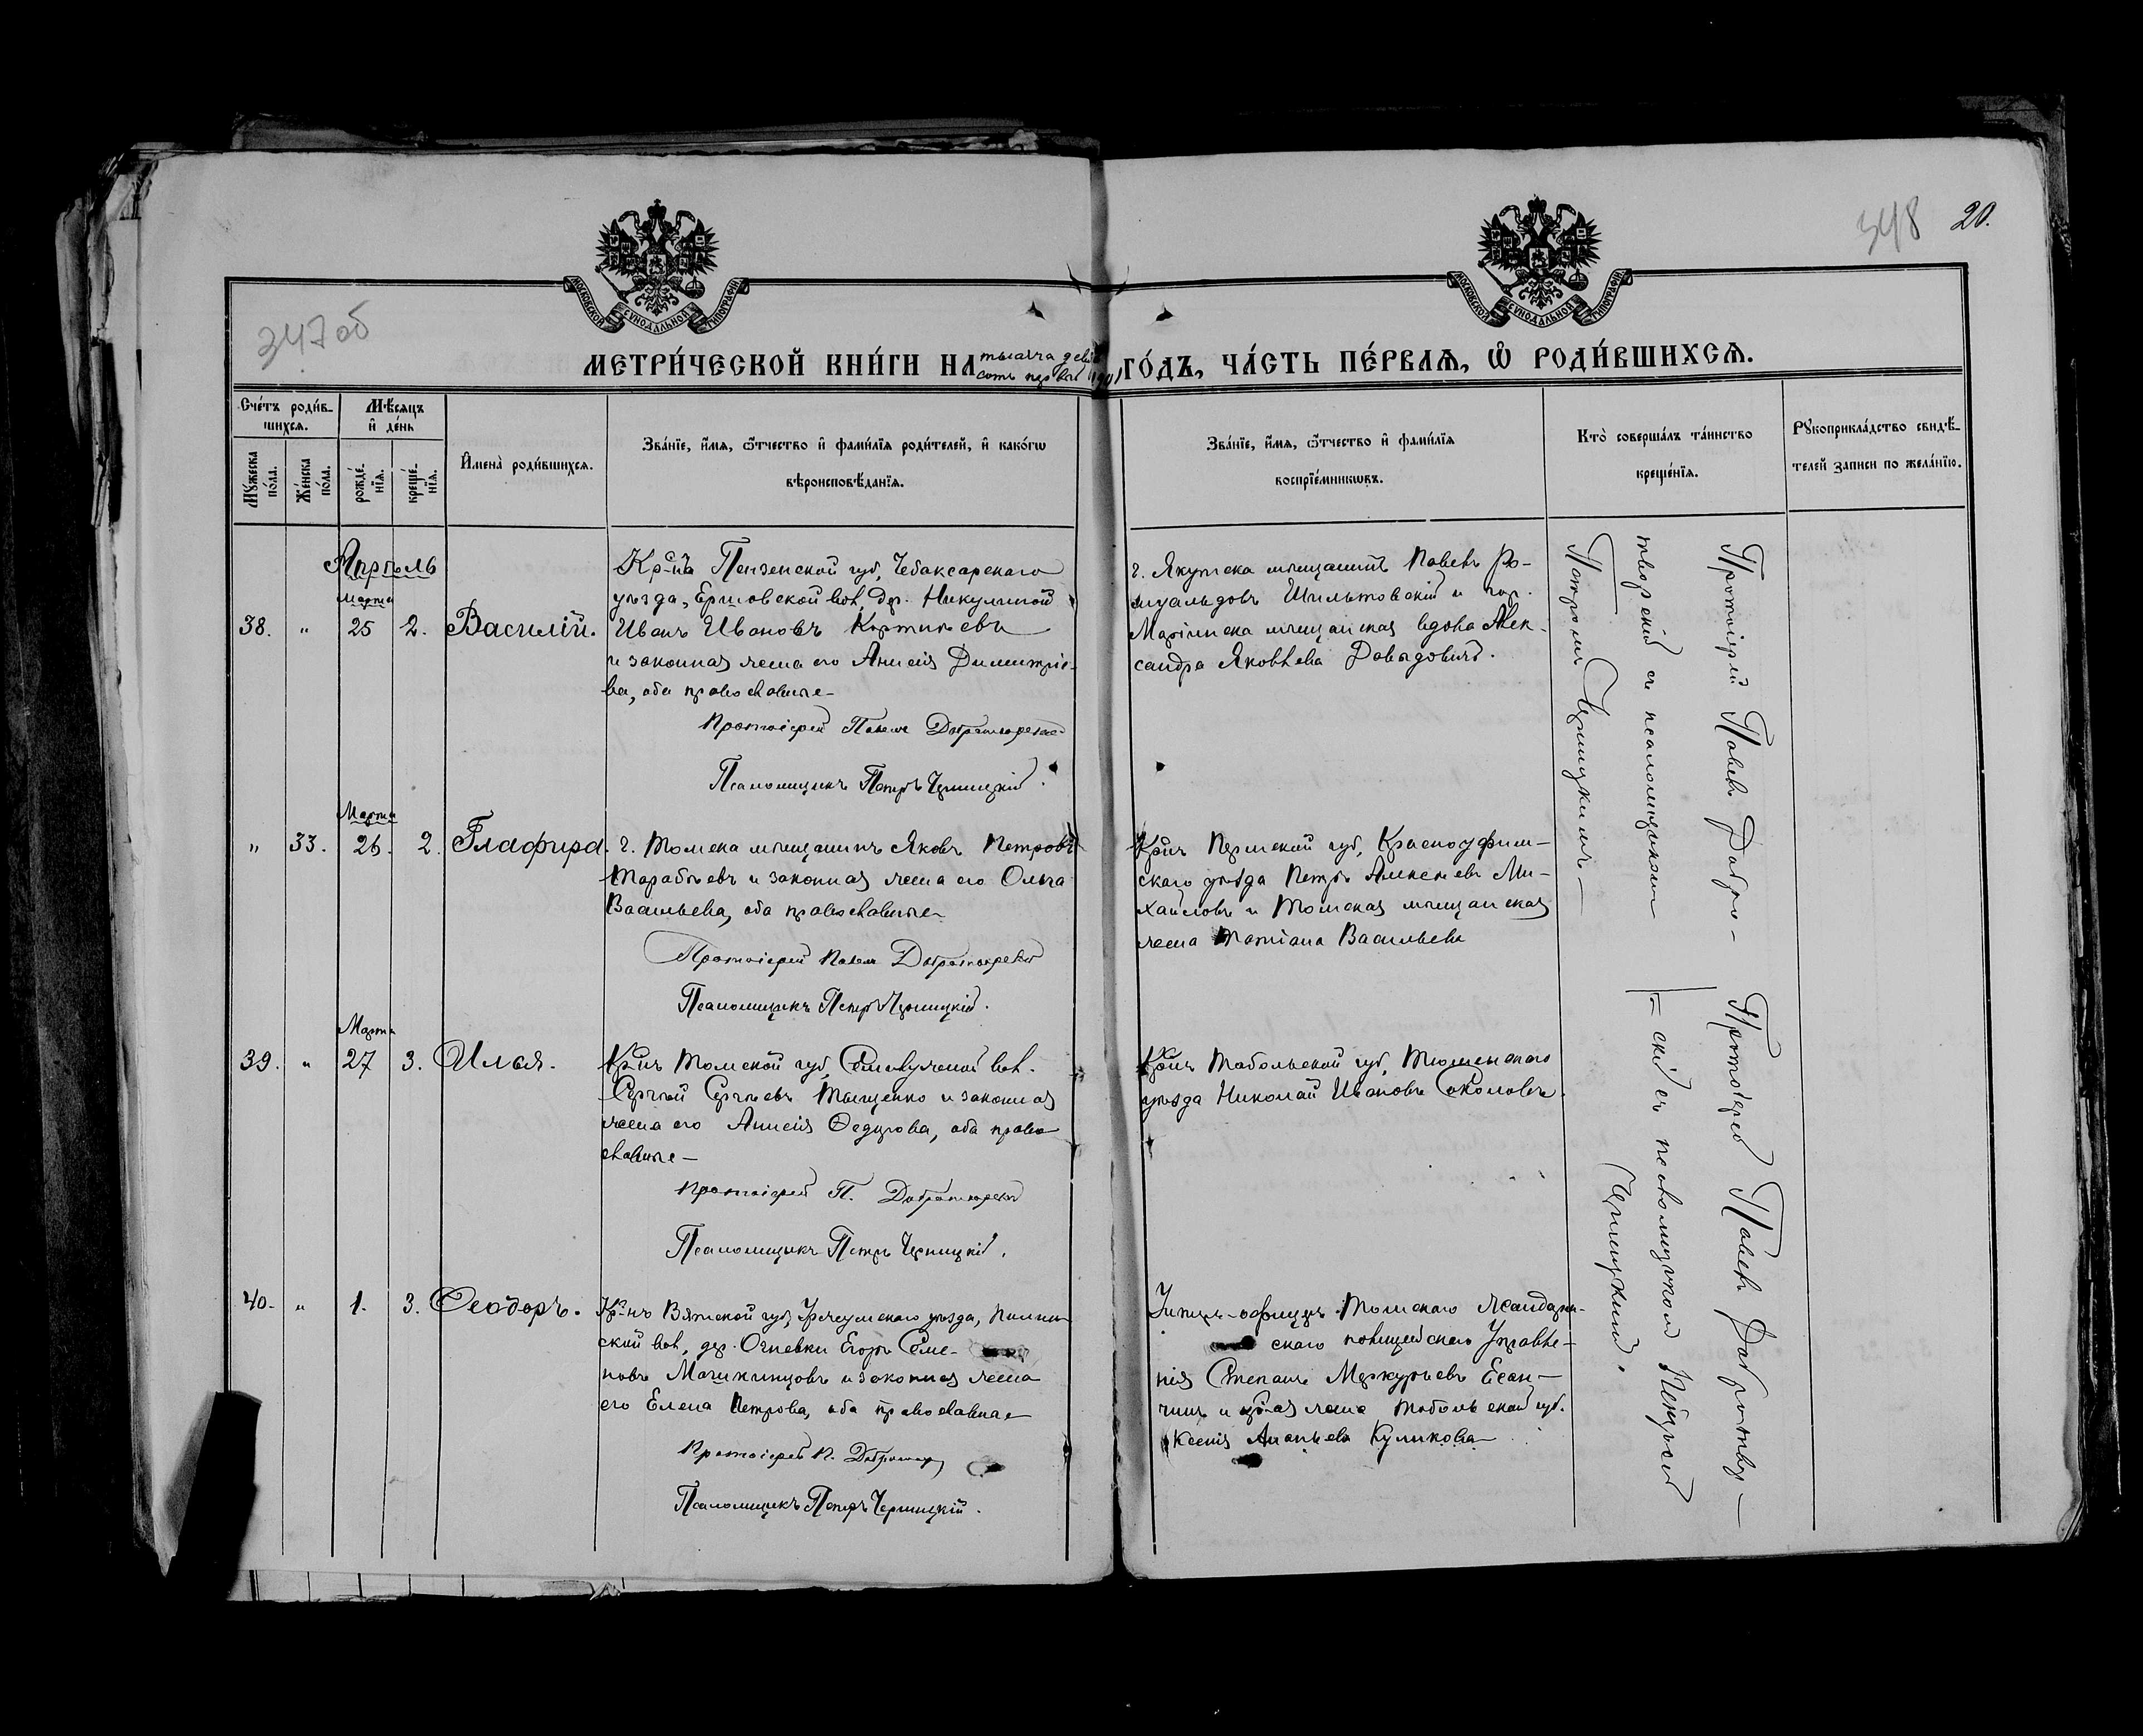 348 20.
347 об
МОСКОВСКОЙ СѴНОДАЛЬНОЙ ТИПОГРАФІИ
МОСКОВСКОЙ СѴНОДАЛЬНОЙ ТИПОГРАФІИ
МЕТРИ́ЧЕСКОЙ КНИ́ГИ НА тысяча девять сотъ первый (1901) ГО́ДЪ, ЧА́СТЬ ПЕ́РВАЯ, Ѡ҆ РОДИ́ВШИХСЯ.
Сче́тъ роди́в-
шихся.
Мѣ́сяцъ
и҆ де́нь
Мꙋ́жеска
по́ла.
Же́нска
по́ла.
рожде́-
нїя.
креще́-
нїя.
И҆мена̀ роди́вшихся.
Зва́нїе, и҆́мя, ѻ҆́тчество и҆ фами́лїя роди́телей, и҆ како́гѡ
вѣроисповѣ́данїя.
Зва́нїе, и҆́мя, ѻ҆́тчество и҆ фами́лїя
воспрїе́мникѡвъ.
Кто̀ соверша́лъ та́инство
креще́нїя.
Рꙋкоприкла́дство свидѣ́-
телей записи по жела́нїю.
Апрѣль
Марта
38. " 25 2. Василій.
Кр-нъ Пензенской губ, Чебаксарскаго
уѣзда, Ершовской вол, дер. Никулиной
Иванъ Ивановъ
и законная жена его Анисія Димитріе-
ва, оба православные
Протоіерей Павелъ Добротворскій
Псаломщикъ Петръ Черницкій.
г. Якутска мѣщанинъ Павелъ Ро-
муальдовъ Шильтовскій и гор.
Маріинска мѣщанская вдова Алек-
сандра Яковлева Давыдовичъ.
Протоіерей Павелъ Добро-
творскій съ псаломщикомъ
Петромъ Черницкимъ
Марта
" 33. 26. 2. Глафира.
г. Томска мѣщанинъ Яковъ Петровъ
Тарабѣевъ и законная жена его Ольга
Васильева, оба православные
Протоіерей Павелъ Добротворскій
Псаломщикъ Петръ Черницкій.
Кр-нъ Пермской губ, Красноуфим-
скаго уѣзда Петръ Алексѣевъ Ми-
хайловъ и Томская мѣщанская
жена Татіана Васильева
Марта
39. " 27 3. Илья.
Кр-нъ Томской губ, вол.
Сергѣй Сергѣевъ Тыщенко и законная
жена его Анисія Федорова, оба право
славные
Протоіерей П. Добротворскій
Псаломщикъ Петръ Черницкій.
Кр-нъ Тобольской губ, Тюменскаго
уѣзда Николай Ивановъ Соколовъ.
Протоіерей Павелъ Добротвор-
скій съ псаломщикомъ Петромъ
Черницкимъ.
40. " 1. 3. Ѳеодоръ.
Кр-нъ Вятской губ, Уржумскаго уѣзда,
ской вол, дер. Огневки Егоръ Семе-
новъ и законная жена
его Елена Петрова, оба православная
Протоіерей П. Добротвор
Псаломщикъ Петръ Черницкій.
Унтеръ-офицеръ Томскаго Жандарм-
скаго полицейскаго Управле-
нія Степанъ Меркурьевъ Есан-
чинъ и кр-ая жена Тобольской губ.
Ксенія Ананьева Куликова